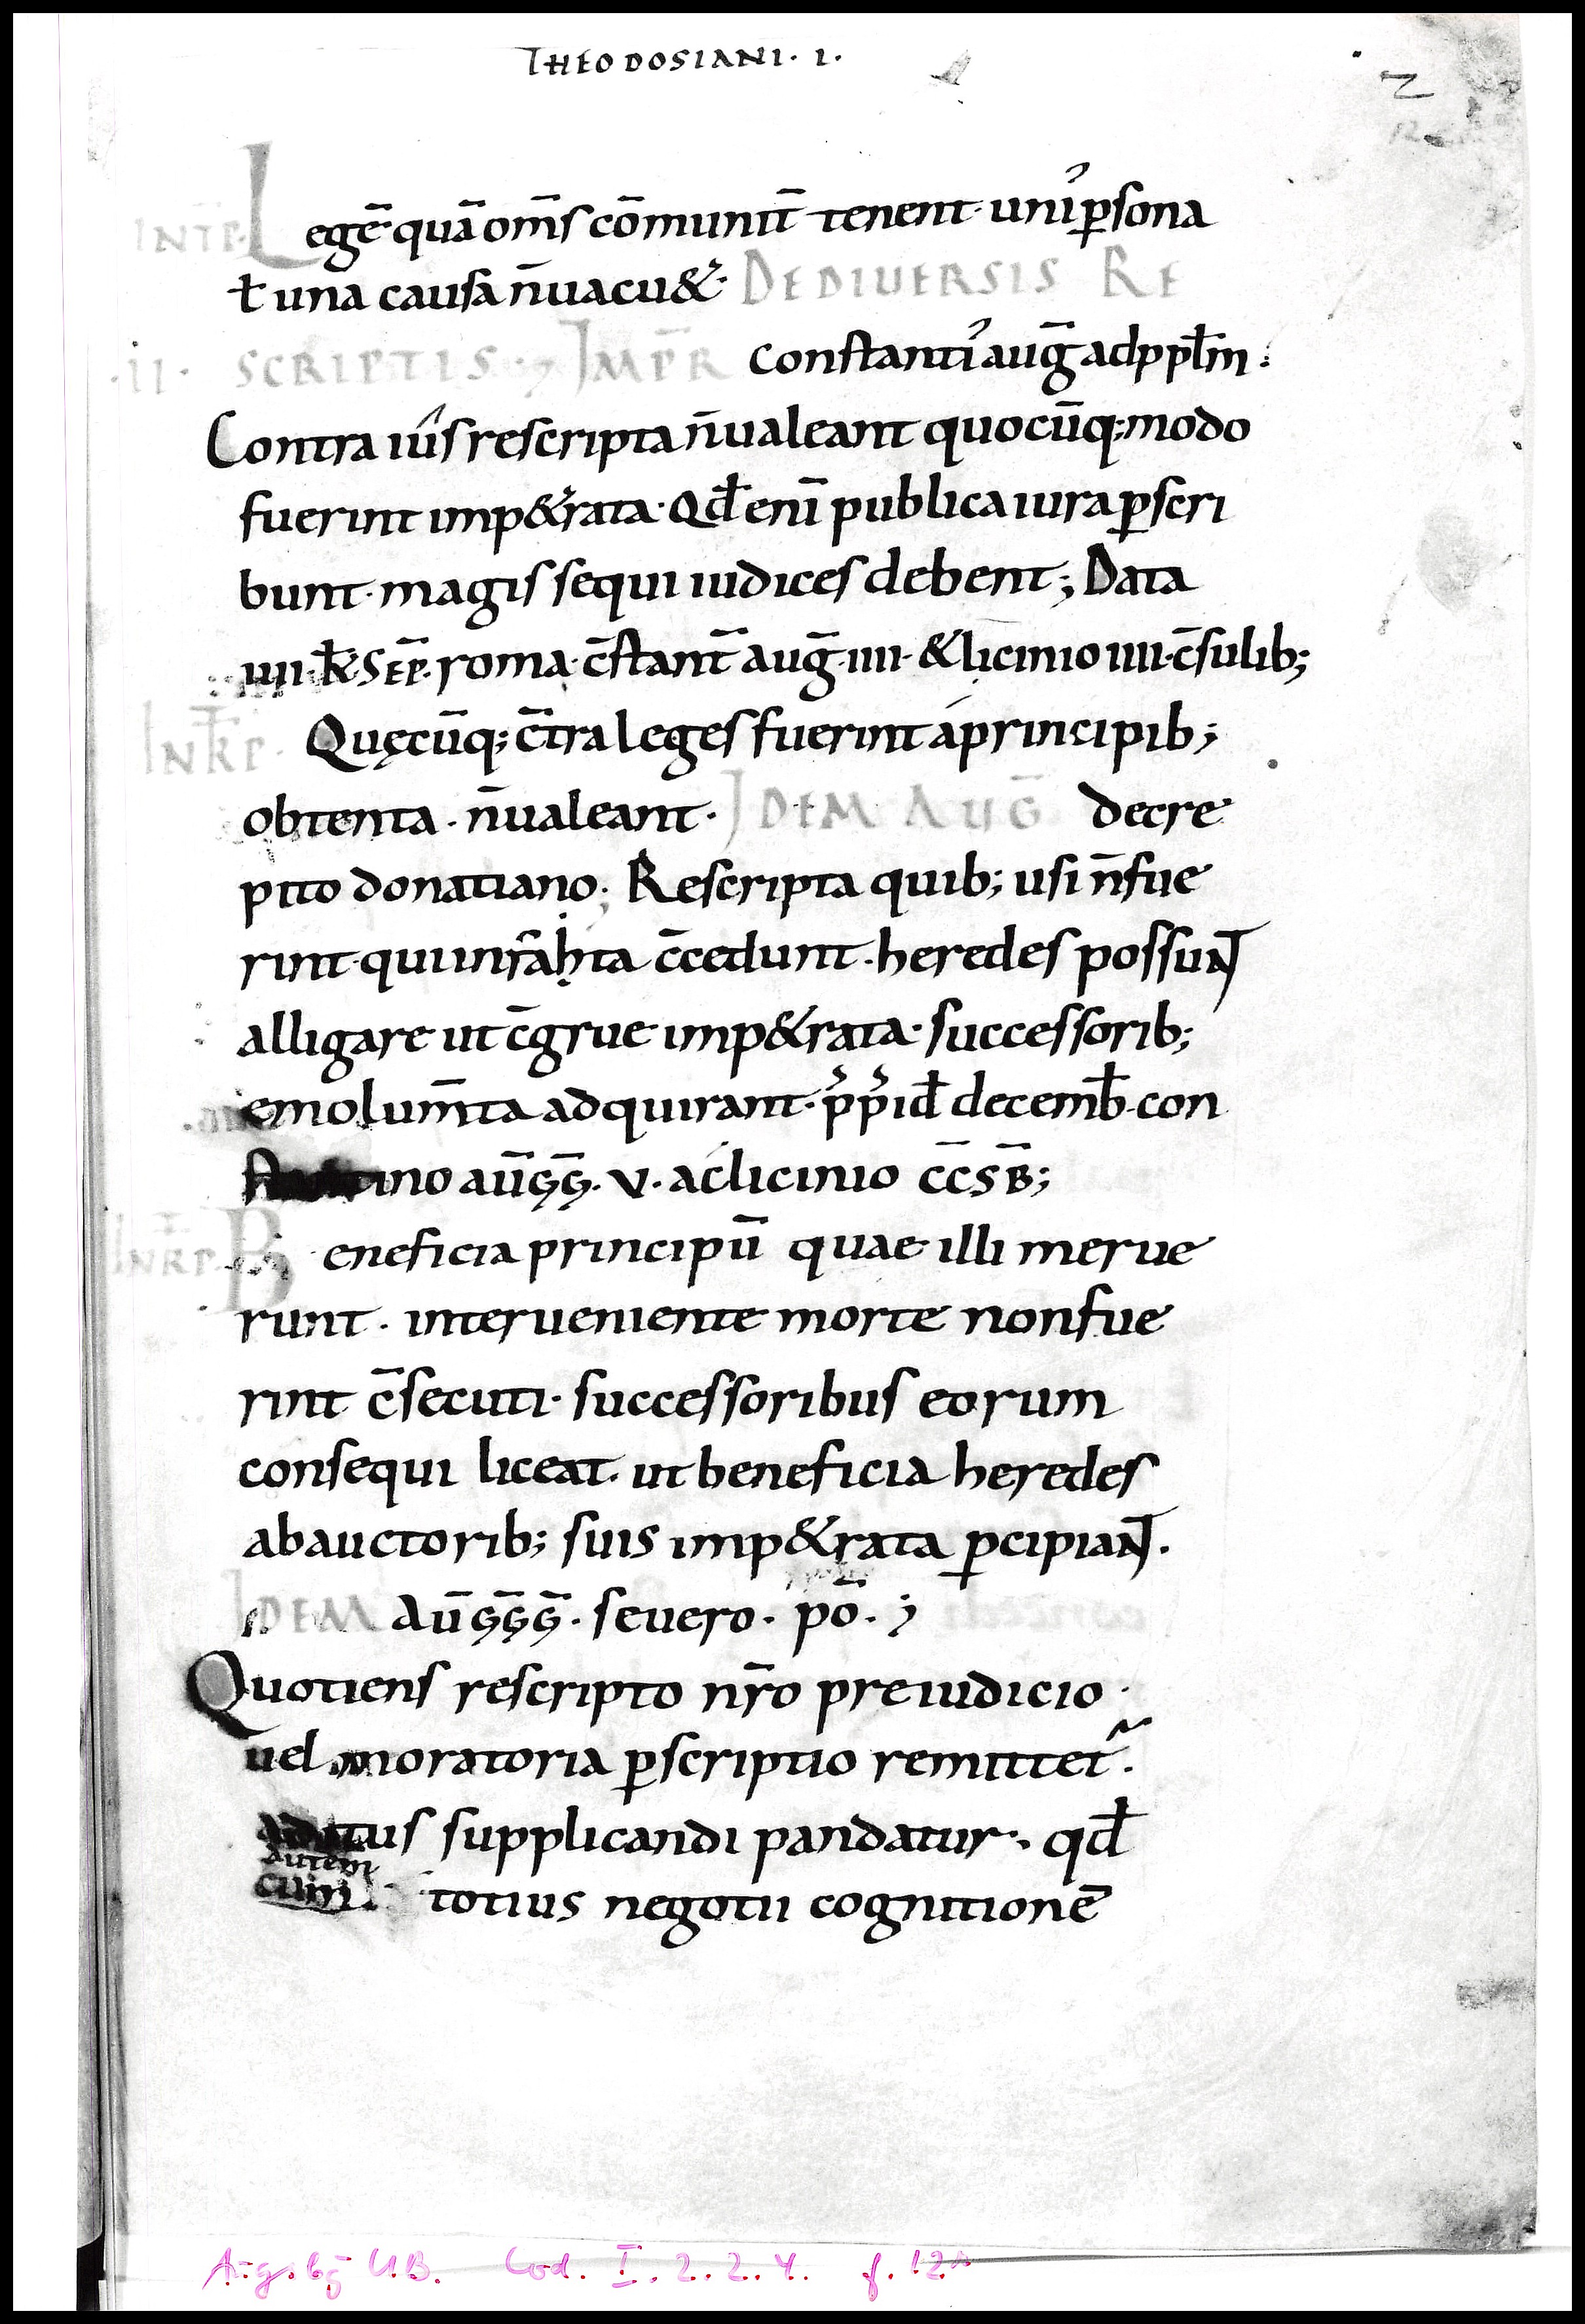 THEODOSIANI · I ·
2
INTP. Legē quā om̄s cōmunit̄ tenent· uni᾽ p̱sona
ł una causa n̄ uacu&᾽· DE DIUERSIS RE
·II· SCRIPTIS·; IMP̄R constanti᾽ auḡ ad ppl̄m :
Contra iu᾽s rescripta n̄ ualeant quocūq; modo
fuerint imp&᾽rata· Qđ enī publica iura p̱scri
bunt· magis sequi iudices debent; Data
IIII· k̄· SEP̄· roma· c̄stant̄ auḡ· IIII· & licinio IIII· c̄sulib;
INT̄RP. Quęcūq; c̄tra leges fuerint a principib;
obtenta · n̄ ualeant · IDEM AUḠ decre
pito donatiano; Rescripta quib; usi n̄ fue
rint· qui inr̄ahta c̄cedunt · heredes possunt
alligare ut c̄grue imp&rata· successorib;
emolum̄ta adquirant· p᾽p᾽ iđ decemƀ · con
stantino aūḡḡ. V. ac licinio c̄c̄s B̄;
INT̄RP. Beneficia principū quae illi merue
runt · interueniente morte non fue
rint c̄secuti· successoribus eorum
consequi liceat· ut beneficia heredes
ab auctorib; suis imp&rata p̱cipiant.
IDEM aūḡḡḡ · seuero · pō · ;
Quotiens rescripto nr̄o preiudicio·
uel moratoria p̱scriptio remittet᷒·
aditus supplicandi pandatur·, qđ
autem
cum totius negotii cognitionē
Augsbg UB. Cod. I. 2. 2. 4. f. 12r